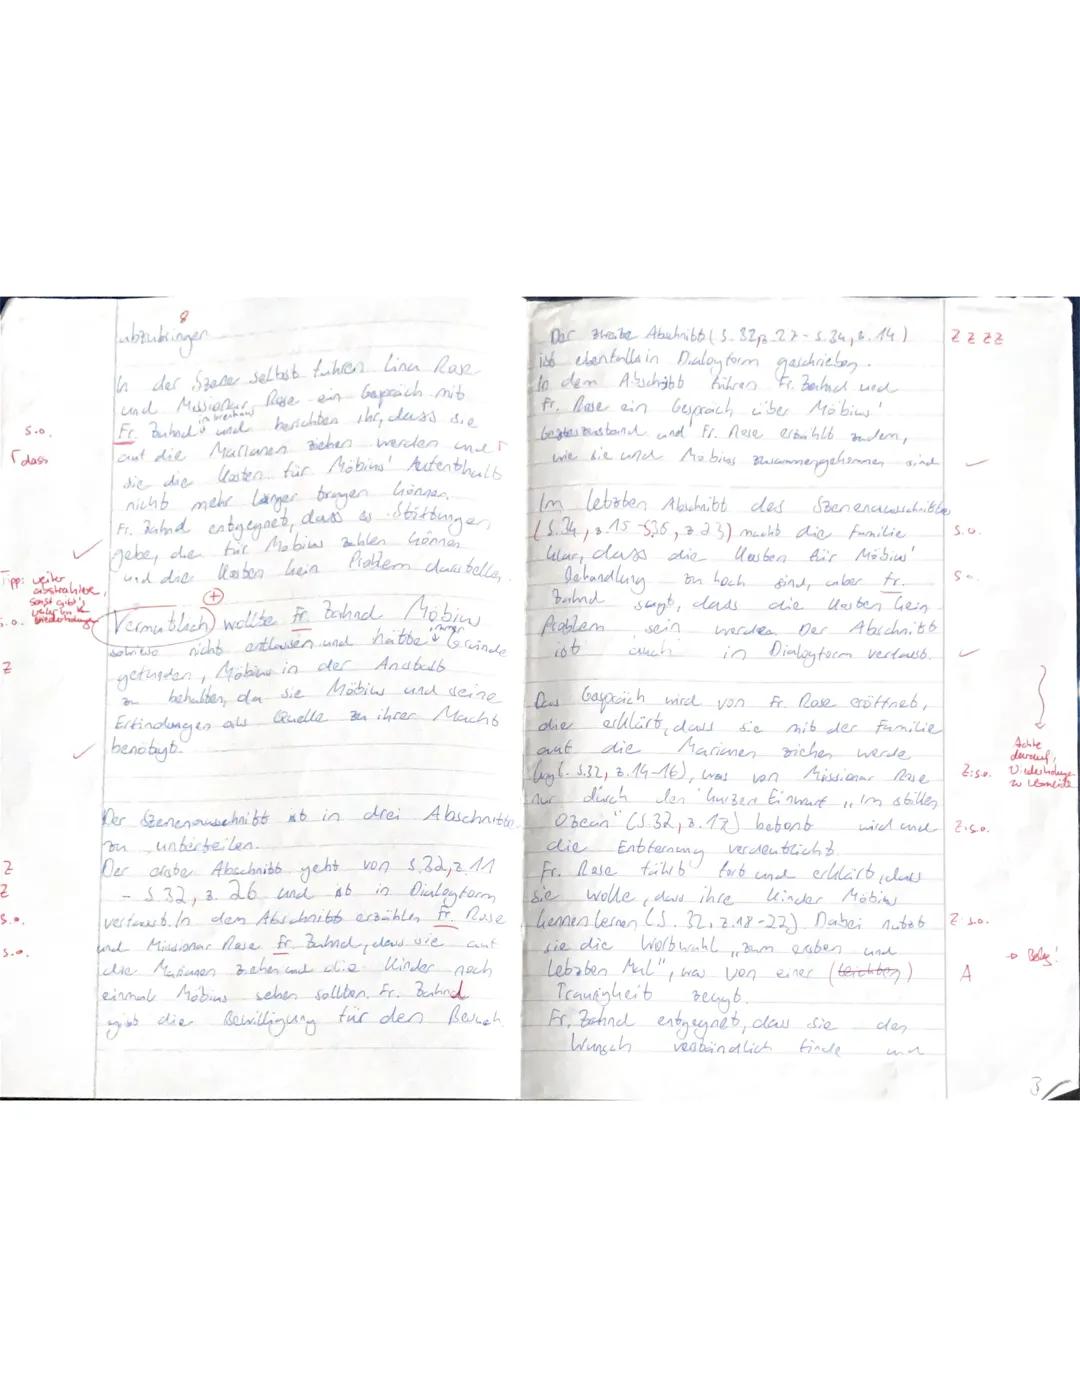 8
abzubringen.
In der Szene selbst führen Lina Rose
und Missionar Rose ein Gespräch mit
Fr. Zahnd und berichten ihr, dass sie
s.o.
auf die Marianen ziehen werden und
Γ dass
sie die Kosten für Möbius' Aufenthalt
nicht mehr länger tragen können.
Fr. Zahnd entgegnet, dass es Stiftungen
gebe, die für Möbius zahlen können
und die Kosten kein Problem darstellen.
Tipp: weiter
abstrahiere,
sonst gibt's
Wiederholungen
s.o.
+
Vermutlich wollte Fr. Zahnd Möbius
immer
sowieso nicht entlassen und hätte Gründe
Z
gefunden, Möbius in der Anstalt
zu behalten, da sie Möbius und seine
Erfindungen als Quelle zu ihrer Macht
benötigt.
Der Szenenausschnitt ist in drei Abschnitte
zu unterteilen.
Z
Der erste Abschnitt geht von S.32, z.11
Z
- S.32, z. 26 und ist in Dialogform
s.o.
verfasst. In dem Abschnitt erzählen Fr. Rose
und Missionar Rose Fr. Zahnd, dass sie auf
s.o.
die Marianen ziehen und die Kinder noch
einmal Möbius sehen sollten. Fr. Zahnd
gibt die Bewilligung für den Besuch.
Der zweite Abschnitt (S.32, z.27 - S.34, z.14)
Z Z Z Z
ist ebenfalls in Dialogform geschrieben.
In dem Abschnitt führen Fr. Zahnd und
Fr. Rose ein Gespräch über Möbius'
und Fr. Rose erzählt zudem,
wie sie und Möbius zusammengekommen sind
Im letzten Abschnitt des Szenenausschnittes
(S.34, z.15 - S.36, z.23) macht die Familie
s.o.
klar, dass die Kosten für Möbius'
Behandlung zu hoch sind, aber Fr.
s.o.
Zahnd sagt, dass die Kosten kein
Problem sein werden. Der Abschnitt
ist auch in Dialogform verfasst.
Das Gespräch wird von Fr. Rose eröffnet,
die erklärt, dass sie mit der Familie
auf die Marianen ziehen werde
Achte
darauf,
Wiederholungen
zu vermeiden
(vgl. S.32, z.14-16), was von Missionar Rose
Z: s.o.
nur durch den kurzen Einwurf „Im stillen
Ozean" (S.32, z.17) betont wird und
Z: s.o.
die Entfernung verdeutlicht.
Fr. Rose fährt fort und erklärt, dass
sie wolle, dass ihre Kinder Möbius
kennen lernen (S. 32, z.18-22). Dabei nutzt
Z: s.o.
sie die Wortwahl „zum ersten und
→ Beleg!
letzten Mal", was von einer (leichten)
A
Traurigkeit zeugt.
Fr. Zahnd entgegnet, dass sie den
Wunsch verständlich finde und
3